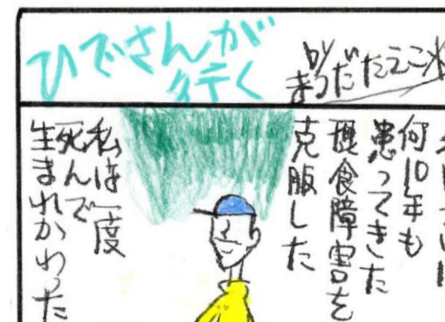 ひでさんが
行く
何10年も
患ってきた
摂食障害を
克服した
私は一度
死んで
生まれかわった